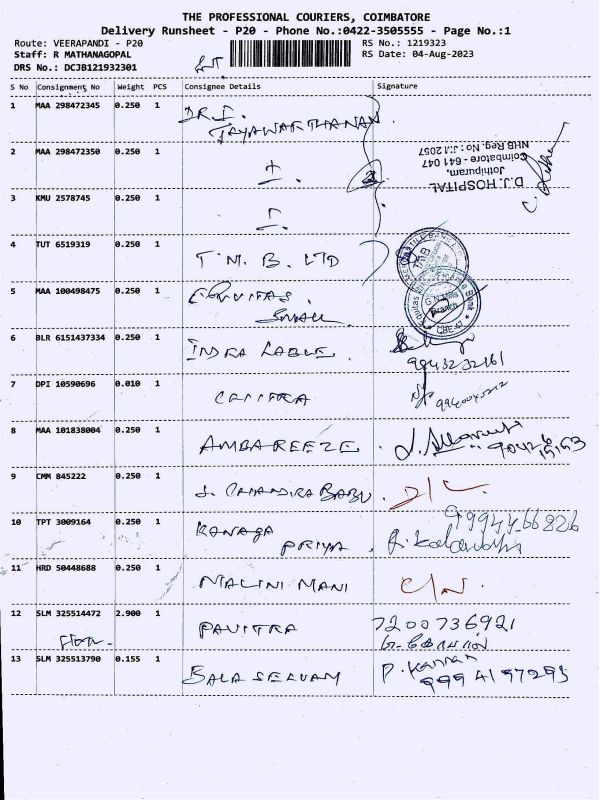 THE PROFESSIONAL COURIERS, COIMBATORE
Delivery Runsheet - P20 - Phone No.:0422-3505555 - Page No.:1
Route: VEERAPANDI - P20 RS No.: 1219323
Staff: R MATHANAGOPAL RS Date: 04-Aug-2023
DRS No.: DCJB121932301
S No Consignment No Weight PCS Consignee Details Signature
1 MAA 298472345 0.250 1 DR. I.
JAYAWARTHANAN.
2 MAA 298472350 0.250 1
D.J. HOSPITAL
Jothipuram,
Coimbatore - 641 047
NHB Reg. No : J.I 2057
3 KMU 2578745 0.250 1
4 TUT 6519319 0.250 1 T. M. B. LTD
TMB
5 MAA 100498475 0.250 1
SMALL
Branch
CBE-47
6 BLR 6151437334 0.250 1 INDRA LABLE. 9943232161
7 DPI 10590696 0.010 1
8 MAA 101838004 0.250 1 AMBAREEZE.
9 CMM 845222 0.250 1 J. CHANDIRA BABU. D/L.
10 TPT 3009164 0.250 1 KANAGA
PRIYA.
11 HRD 50448688 0.250 1 MALINI MANI
12 SLM 325514472 2.900 1 PAVITRA 7200736921
13 SLM 325513790 0.155 1 BALA SELVAM P. Kannan
9994197293